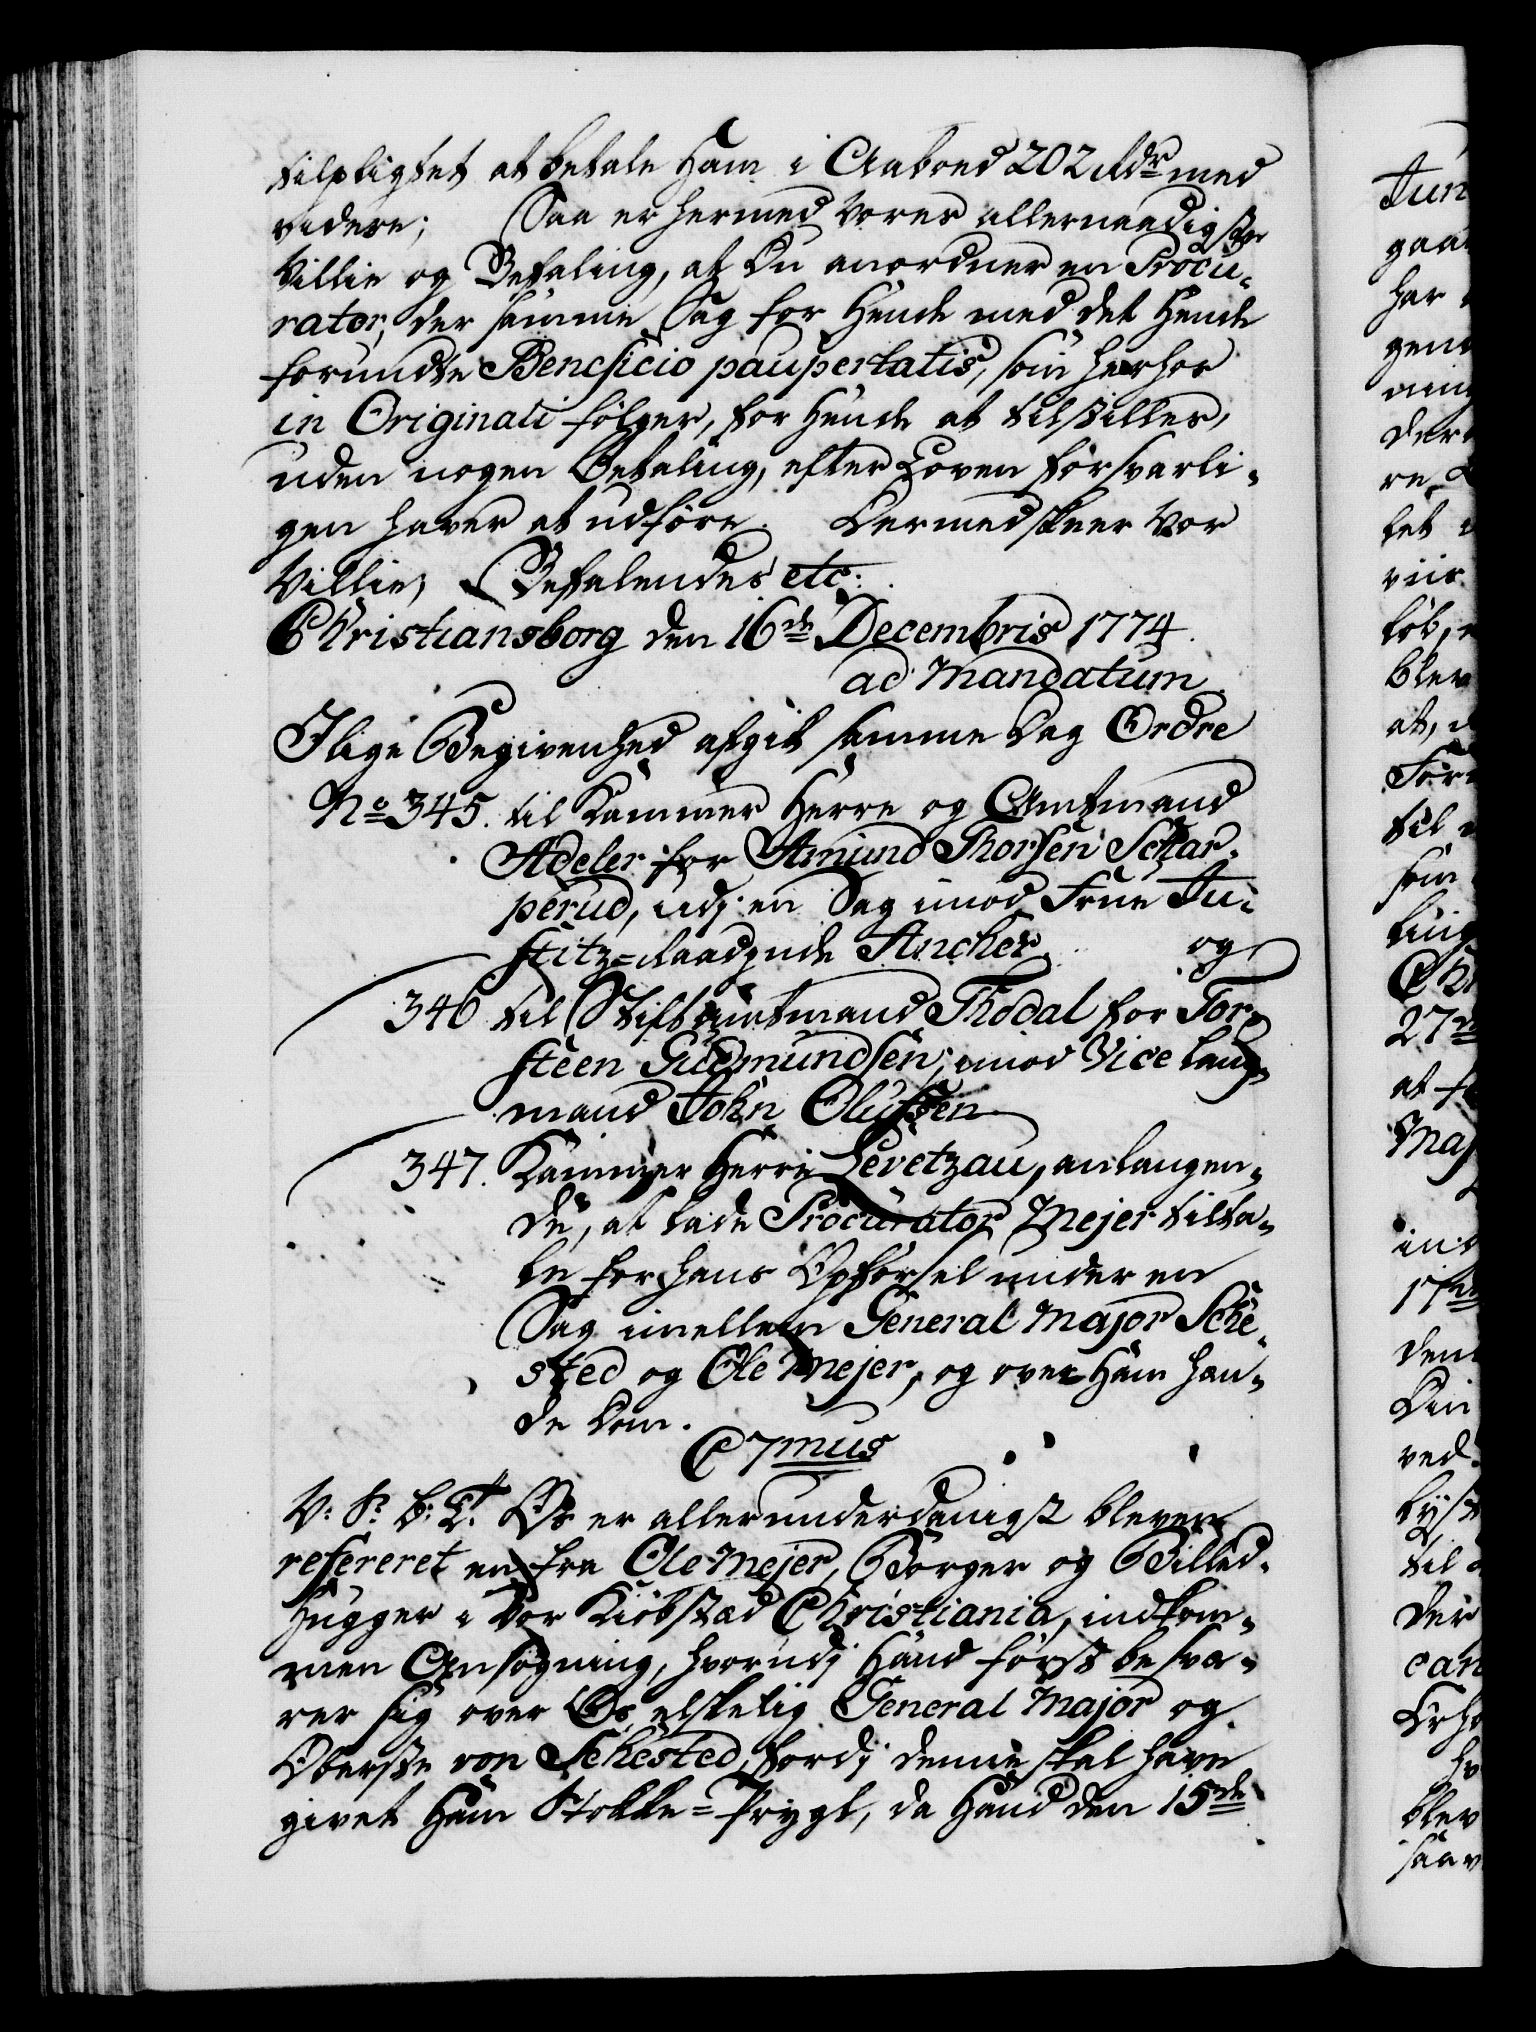 tilpligtet at betale ham i Aaboed 202 Rdr med
videre; Saa er hermed Vores allernaadigste
Villie og Befaling, at Du anordner en Procu-
rator, der samme Sag for Hende med det Hende
forundte Beneficio paupertatis, som herhos
in Originali følger, for Hende at tilstilles,
uden nogen Betaling, efter Loven forsvarli-
gen haver at udføre. Dermed skeer Vor
Villie; Befalendes etc:
Christiansborg den 16de Decembris 1774.
ad Mandatum
I lige Begivenhed afgik samme Dag Ordre
No 345. til Kammer Herre og Amtmand
Adeler for Amund Thorsen Schar-
perud, udj en Sag imod Frue Ju-
stitz-Raadinde Ancher og
346 til Stiftamtmand Thodal for Tor-
steen Gudmundsen, imod Vice Laug-
mand John Olufsen
347. Kammer Herre Levetzau, anlangen-
de, at lade Procurator Mejer tilta-
le for hans Opførsel under en
Sag imellem General Major Sche-
sted og Ole Mejer, og over ham han-
de Dom.
C 7mus
V: S: B: T. Os er allerunderdanigst bleven
refereret en fra Ole Mejer, Borger og Billed-
hugger i Vor Kiøbstad Christiania, indkom-
men Ansøgning, hvorudj Hand først besvæ-
rer sig over Os elskelig General Major og
Oberste von Schested, fordj denne skal have
givet Ham Stokke-Prygl, da Hand den 15de